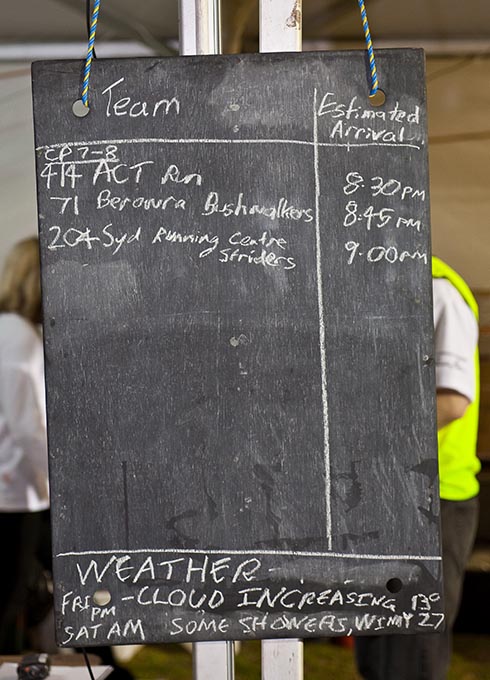 Team
Estimated
Arrival
CP 7-8
414 ACT Run 8:30pm
71 Berowra Bushwalkers 8:45pm
204 Syd Running Centre 9.00pm
Striders
WEATHER-
FRI PM - CLOUD INCREASING 13°
SAT AM SOME SHOWERS, WINDY 27